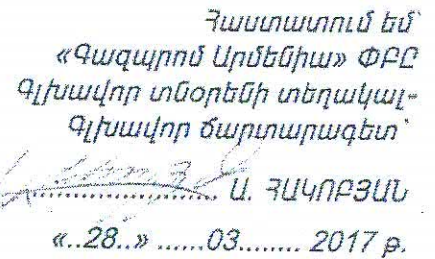 Հաստատում եմ՝
«Գազպրոմ Արմենիա» ՓԲԸ
Գլխավոր տնօրենի տեղակալ-
Գլխավոր ճարտարագետ՝
........................ Ա. ՀԱԿՈԲՅԱՆ
«..28..» ......03........ 2017 թ.